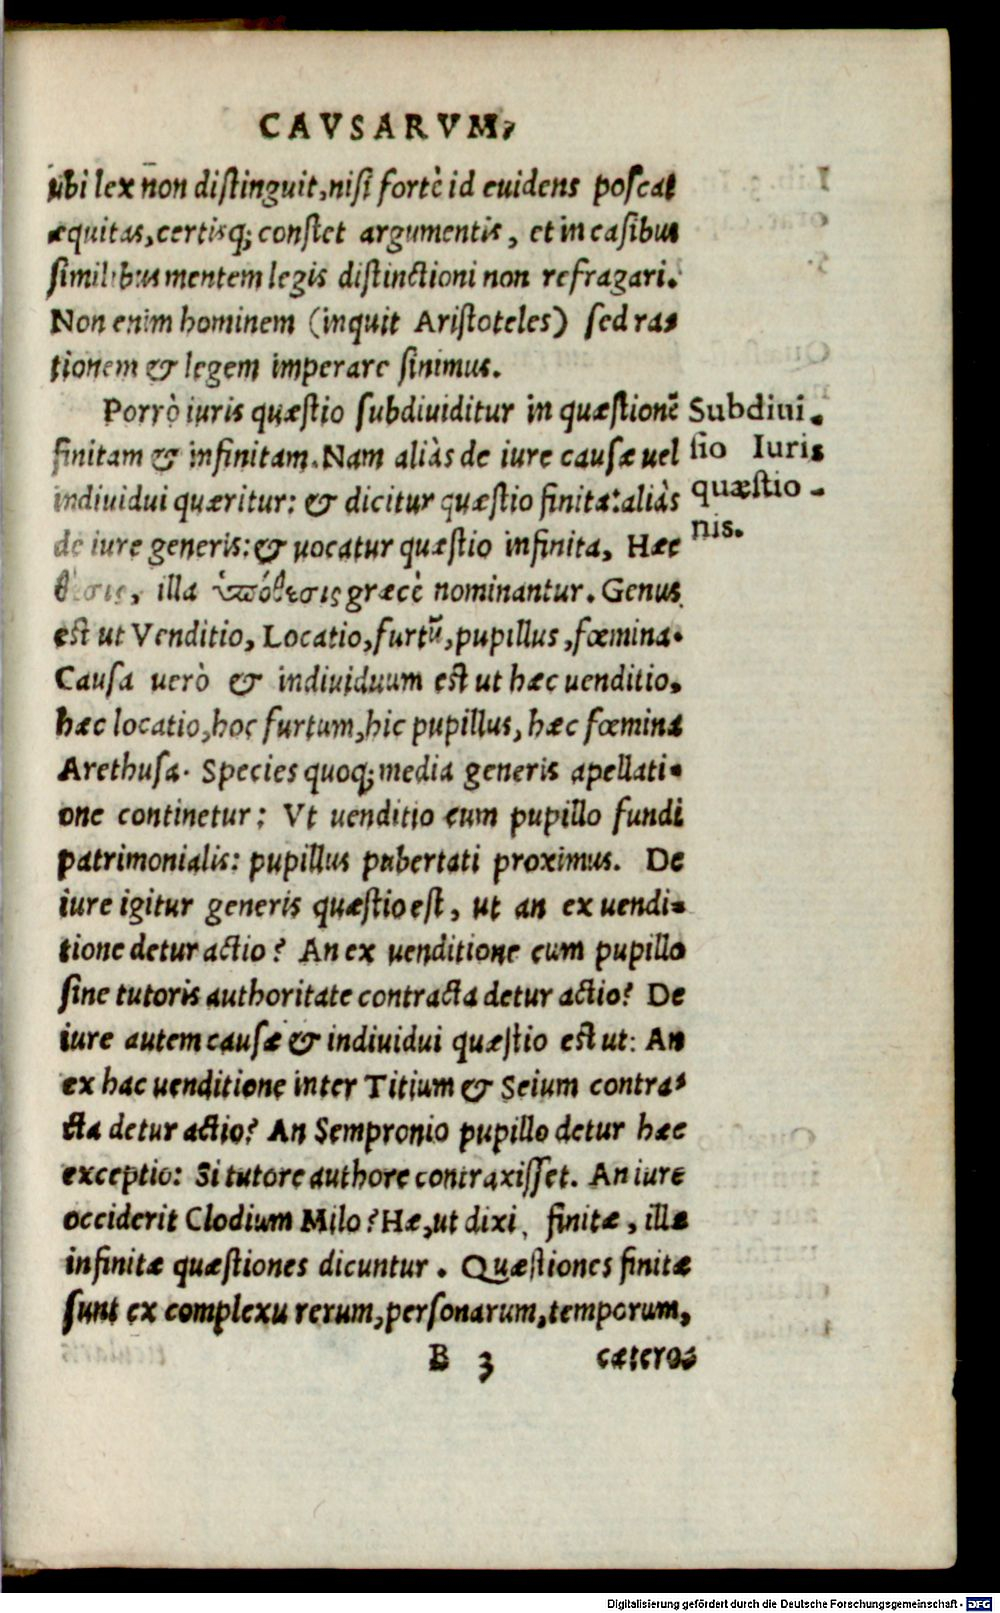 CAVSARVM,
ubi lex non distinguit, nisi fortè id euidens poscat
æquitas, certisq; constet argumentis, et in casibus
similibus mentem legis distinctioni non refragari.
Non enim hominem (inquit Aristoteles) sed ra-
tionem & legem imperare sinimus.
Porrò iuris quæstio subdiuiditur in quæstionẽ
finitam & infinitam. Nam aliàs de iure causæ uel
indiuidui quæritur: & dicitur quæstio finita: aliàs
de iure generis: & uocatur quæstio infinita, Hæc
θέσις, illa ὑπόθεσις græcè nominantur. Genus
est ut Venditio, Locatio, furtũ, pupillus, fœmina.
Causa uerò & indiuiduum est ut hæc uenditio,
hæc locatio, hoc furtum, hic pupillus, hæc fœmina
Arethusa. Species quoq; media generis apellati-
one continetur: Vt uenditio cum pupillo fundi
patrimonialis: pupillus pubertati proximus. De
iure igitur generis quæstio est, ut an ex uendi-
tione detur actio? An ex uenditione cum pupillo
sine tutoris authoritate contracta detur actio? De
iure autem causæ & indiuidui quæstio est ut: An
ex hac uenditione inter Titium & Seium contra-
cta detur actio? An Sempronio pupillo detur hæc
exceptio: Si tutore authore contraxisset. An iure
occiderit Clodium Milo? Hæ, ut dixi, finitæ, illæ
infinitæ quæstiones dicuntur. Quæstiones finitæ
sunt ex complexu rerum, personarum, temporum,
B 3 cæteros
Subdiui-
sio Iuris
quæstio-
nis.
Digitalisierung gefördert durch die Deutsche Forschungsgemeinschaft - DFG